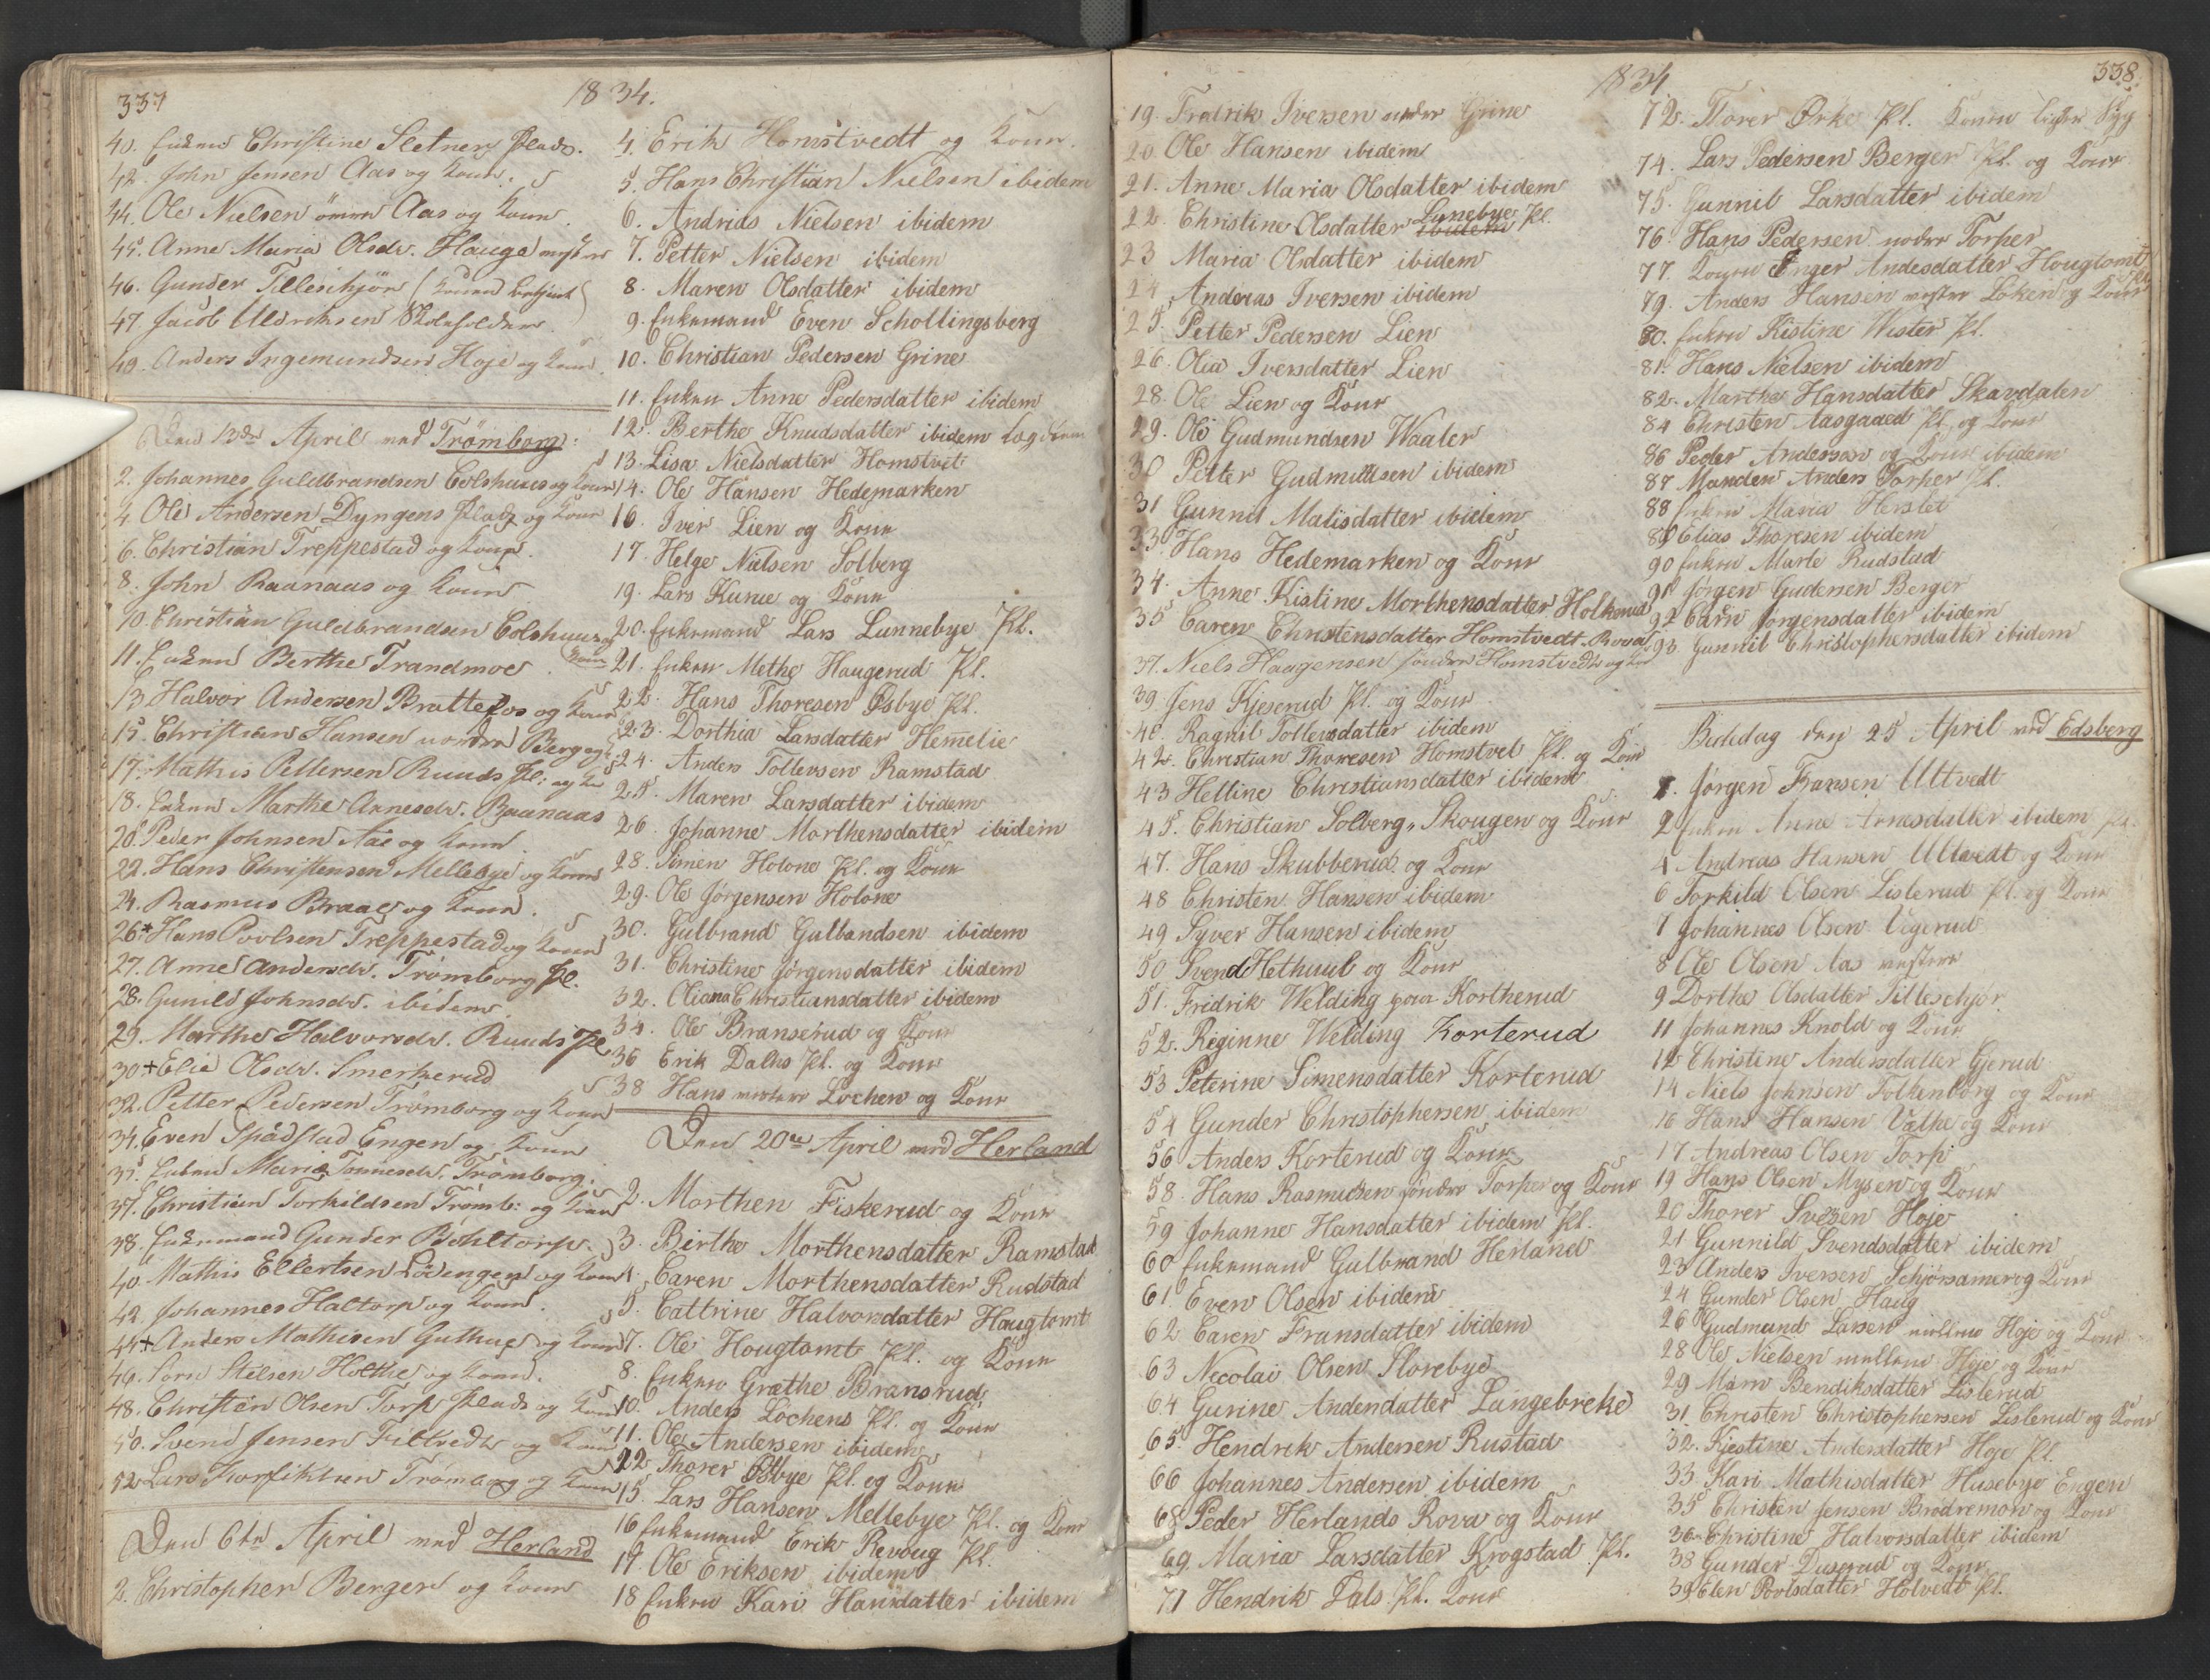 337
1834.
40. Enken Christine Sletner Plads.
42. John Jensen Aas og Kone.
44. Ole Nielsen Aas og Kone.
45. Anne Maria Olsdr. Hauge
46. Gunder Tilleschjør (
47. Jacob Uldriksen Skoleholder
49. Anders Ingemundsen Hoje og Kone
Den 13de April ved Trømborg:
2. Johannes Guldbrandsen Colshuus og Kone
4. Ole Andersen Dyngens Plads og Kone
6. Christian Treppestad og Kone.
8. John Raanaas og Kone
10. Christian Guldbrandsen Colshuus og Kone
11. Enken Berthe Trandmoe
13. Halvor Andersen Brattefos og Kone
15. Christian Hansen nordre Berg og
17. Mathis Pettersen Ruuds Pl: og Ko
18. Enken Marthe Arnesdr. Raanaas
20. Peder Johnsen Aae og Kone
22. Hans Christensen Mellebye og Kone
24. Rasmus Braae og Kone.
26 + Hans Povlsen Treppestad og Kone
27. Anne Andersdr. Trømborg Pl.
28. Gunild Johnsdr. ibidem
29. Marthe Halvorsdr. Ruuds Pl.
30 + Elie Olsdr. Smerkerud
32. Petter Pedersen Trømborg og Kone
34. Even Spådstad Engen og Kone
35. Enken Maria Tonnesdr. Trømborg.
37. Christian Torkildsen Trømb: og Kone
38. Enkemand Gunder Bøhltorp.
40. Mathis Ellertsen Lövengen og Kone
42. Johannes Haltorp og Kone.
44 + Anders Mathisen Guthus og Kone
46. Sorn Stilsen Holthe og Kone.
48. Christian Olsen Torp Plads og Kone
50. Svend Jensen Filtvedt og Kone
52. Lars Trømborg og Kone
Den 6te April ved Herland
2. Christopher Berger og Kone
4. Erik Homstvedt og Kone.
5. Hans Christian Nielsen ibidem
6. Andrias Nielsen ibidem
7. Petter Nielsen ibidem
8. Maren Olsdatter ibidem
9. Enkemand Even Schollingsberg
10. Christian Pedersen Grine
11. Enken Anne Pedersdatter ibidem
12. Berthe Knudsdatter ibidem
13. Lisa Nielsdatter Homstvet
14. Ole Hansen Hedemarken
16. Iver Lien og Kone
17. Helge Nielsen Solberg
19. Lars Kurue og Kone
20. Enkemand Lars Lunnebye Pl.
21. Enken Methe Haugerud Pl.
22. Hans Thoresen Øsbye Pl.
23. Dorthia Larsdatter Hemelie
24. Anders Tollevsen Ramstad
25. Maren Larsdatter ibidem
26. Johanne Morthensdatter ibidem
28. Simen Holone Pl. og Kone
29. Ole Jørgensen Holone
30. Gulbrand Gulbandsen ibidem
31. Christine Jørgensdatter ibidem
32. Oliana Christiansdatter ibidem
34. Ole Branserud og Kone
36 Erik Dalhs Pl. og Kone
38 Hans vestere Løchen og Kone
Den 20de April ved Herland
2. Morthen Fiskerud og Kone
3. Birthe Morthensdatter Ramstad
4. Caren Morthensdatter Rudstad
5. Cattrine Halvorsdatter Haugtomt
7. Ole Hougtomt Pl. og Kone
8. Enken Grethe Bransrud
10. Anders Løchens Pl. og Kone
11. Ole Andersen ibidem
12 Thorer Østbye Pl. og Kone
15. Lars Hansen Mellebye Pl. og Kone
16 Enkemand Erik Revoug Pl.
17. Ole Eriksen ibidem
18 Enken Kari Hansdatter ibidem
1834
338.
19. Fredrik Iversen Grine
20. Ole Hansen ibidem
21. Anne Maria Olsdatter ibidem
22. Christine Olsdatter ibidem Lunebye Pl.
23 Maria Olsdatter ibidem
24 Andreas Iversen ibidem
25. Petter Pedersen Lien
26. Olia Iversdatter Lien
28. Ole Lien og Kone
29. Ole Gudmundsen Waaler
30 Petter Gudmundsen ibidem
31 Gunnil Malisdatter ibidem
33 Hans Hedemarken og Kone
34. Anne Kistine Morthensdatter Holkerud
35 Caren Christensdatter Homstvedt Rova
37. Niels Haagensen søndre Homstvedt og Ko
39. Jens Kjeserud Pl. og Kone
40. Ragnil Tollevsdatter ibidem
42. Christian Thoresen Homstvet Pl. og Kone
43 Helline Christiansdatter ibidem
45. Christian Solberg Skougen og Kone
47. Hans Skubberud og Kone
48 Christen Hansen ibidem
49 Syver Hansen ibidem
50 Svend Hethuul og Kone
51. Fridrik Welding Kortherud
52. Reginne Welding Korterud
53 Peterine Simensdatter Korterud
54 Gunder Christophersen ibidem
56 Anders Korterud og Kone
58. Hans Rasmusen søndre Torper og Kone
59 Johanne Hansdatter ibidem Pl.
60 Enkemand Gulbrand Herland
61 Even Olsen ibidem
62 Caren Fransdatter ibidem
63 Neccolai Olsen Slorebye
64 Gurine Andendatter Langebreke
65. Hendrik Andersen Rustad
66 Johannes Andersen ibidem
68 Peder Herlands Rova og Kone
69 Maria Larsdatter Krogstad Pl.
71 Hendrik Dals Pl. Kone
72. Thorer Ørke Pl. Konen ligger Syg
74. Lars Pedersen Berger Pl. og Kone
75. Gunnil Larsdatter ibidem
76. Hans Pedersen nodre Torper
77. Konen Inger Andesdatter Hougtomt Pl.
79. Anders Hansen vestre Løken og Kone
80. Enken Kistine Wister Pl.
81. Hans Nielsen ibidem
82. Marthe Hansdatter Skavdalen
84 Christen Aasgaaed Pl. og Kone
86 Peder Anderson og Kone ibidem
87 Manden Anders Torper Pl.
88 Enken Maria Herslet
89 Elias Thoresen ibidem
90 Enken Marte Rudstad
91 Jørgen Gudersen Berger
92 Carn Jørgensdatter ibidem
93. Gunnil Christophersdatter ibidem
Bededag den 25 April ved Edsberg
1. Jørgen Fransen Ultvedt
2 Enken Anne Arnesdatter ibidem Pl.
4 Andreas Hansen Ultvedt og Kone
6 Torkild Olsen Lislerud Pl. og Kone
7 Johannes Olsen Vegerud
8 Ole Olsen Aas vestere
9 Dorthe Olsdatter Tilleschjør
11 Johannes Knold og Kone
12 Christine Andersdatter Gjerud
14 Niels Johnsen Folkenborg og Kone
16 Hans Hansen Vathe og Kone
17 Andreas Olsen Torp
19 Hans Olsen Mysen og Kone
20 Thorer Svesen Hoje
21 Gunnild Svendsdatter ibidem
23 Anders Iversen Schjørsamer og Kone
24 Gunder Olsen Haug
26 Gudmund Larsen mellem Hoje og Kone
28 Ole Nielsen mellem Hoje og Kone
29 Maren Bendiksdatter Lislerud
31. Christen Christophersen Lislerud og Kone
32. Kjestine Andersdatter Hoje Pl.
33 Kari Mathisdatter Husebye Engen
35 Christen Jensen Brødremon og Kone
36 Christine Halvorsdatter ibidem
38 Gunder Duserud og Kone
39 Elen Povlsdatter Holvedt Pl.